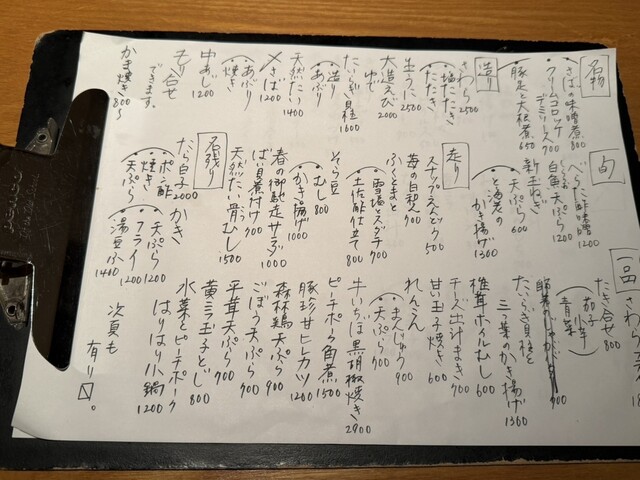 名物
さばの味噌煮 800
クリームコロッケ
デミソース 900
豚足と大根煮 650
造り
さわら 2500
塩たたき
たたき
生うに 2500
大造えび 2000
ゆで
たいらぎ貝柱 1600
造り
あぶり
天然たい 1400
〆さば 1200
あぶり
焼き
中あじ 1200
もり合せ
できます。
かま焼き 800〜
旬
へらたい酢味噌 1200
白魚天ぷら 1200
新玉ねぎ
天ぷら 600
と海老の
かき揚げ 1300
走り
スナップえんどう 500
苺の白和え 900
ふぐとまと
雪塩とスダチ 700
土佐酢仕立て 800
そら豆
むし 800
かき揚げ 1000
春の御馳走サラダ 1000
ばい貝煮付け 900
天然たい骨むし 1500
名残り
たら白子 2000
ポン酢
焼き
天ぷら
かき
天ぷら 1200
フライ 1200
湯豆ふ 1400
一品
さわら
たき合せ 800
茄子
小芋
青菜
たいらぎ貝柱と
三つ葉のかき揚げ 1300
椎茸ホイルむし 600
チーズ出汁まき 900
甘い玉子焼き 600
れんこん
まんじゅう 900
天ぷら 700
牛いちぼ黒胡椒焼き 2800
ピーチポーク角煮 1500
豚珍甘ヒレカツ 1200
森林鶏天ぷら 900
ごぼう天ぷら 700
平茸天ぷら 700
黄ニラ玉子とじ 800
水菜とピーチポーク
はりはり小鍋 1200
次頁も
有り〼。